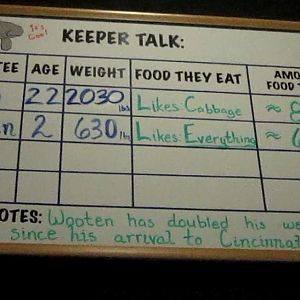 It's Cool
KEEPER TALK:
TEE AGE WEIGHT FOOD THEY EAT AMO
FOOD T
22 2030 lbs Likes: Cabbage ≈
n 2 630 lbs Likes: Everything ≈
OTES: Wooten has doubled his we
since his arrival to Cincinnat